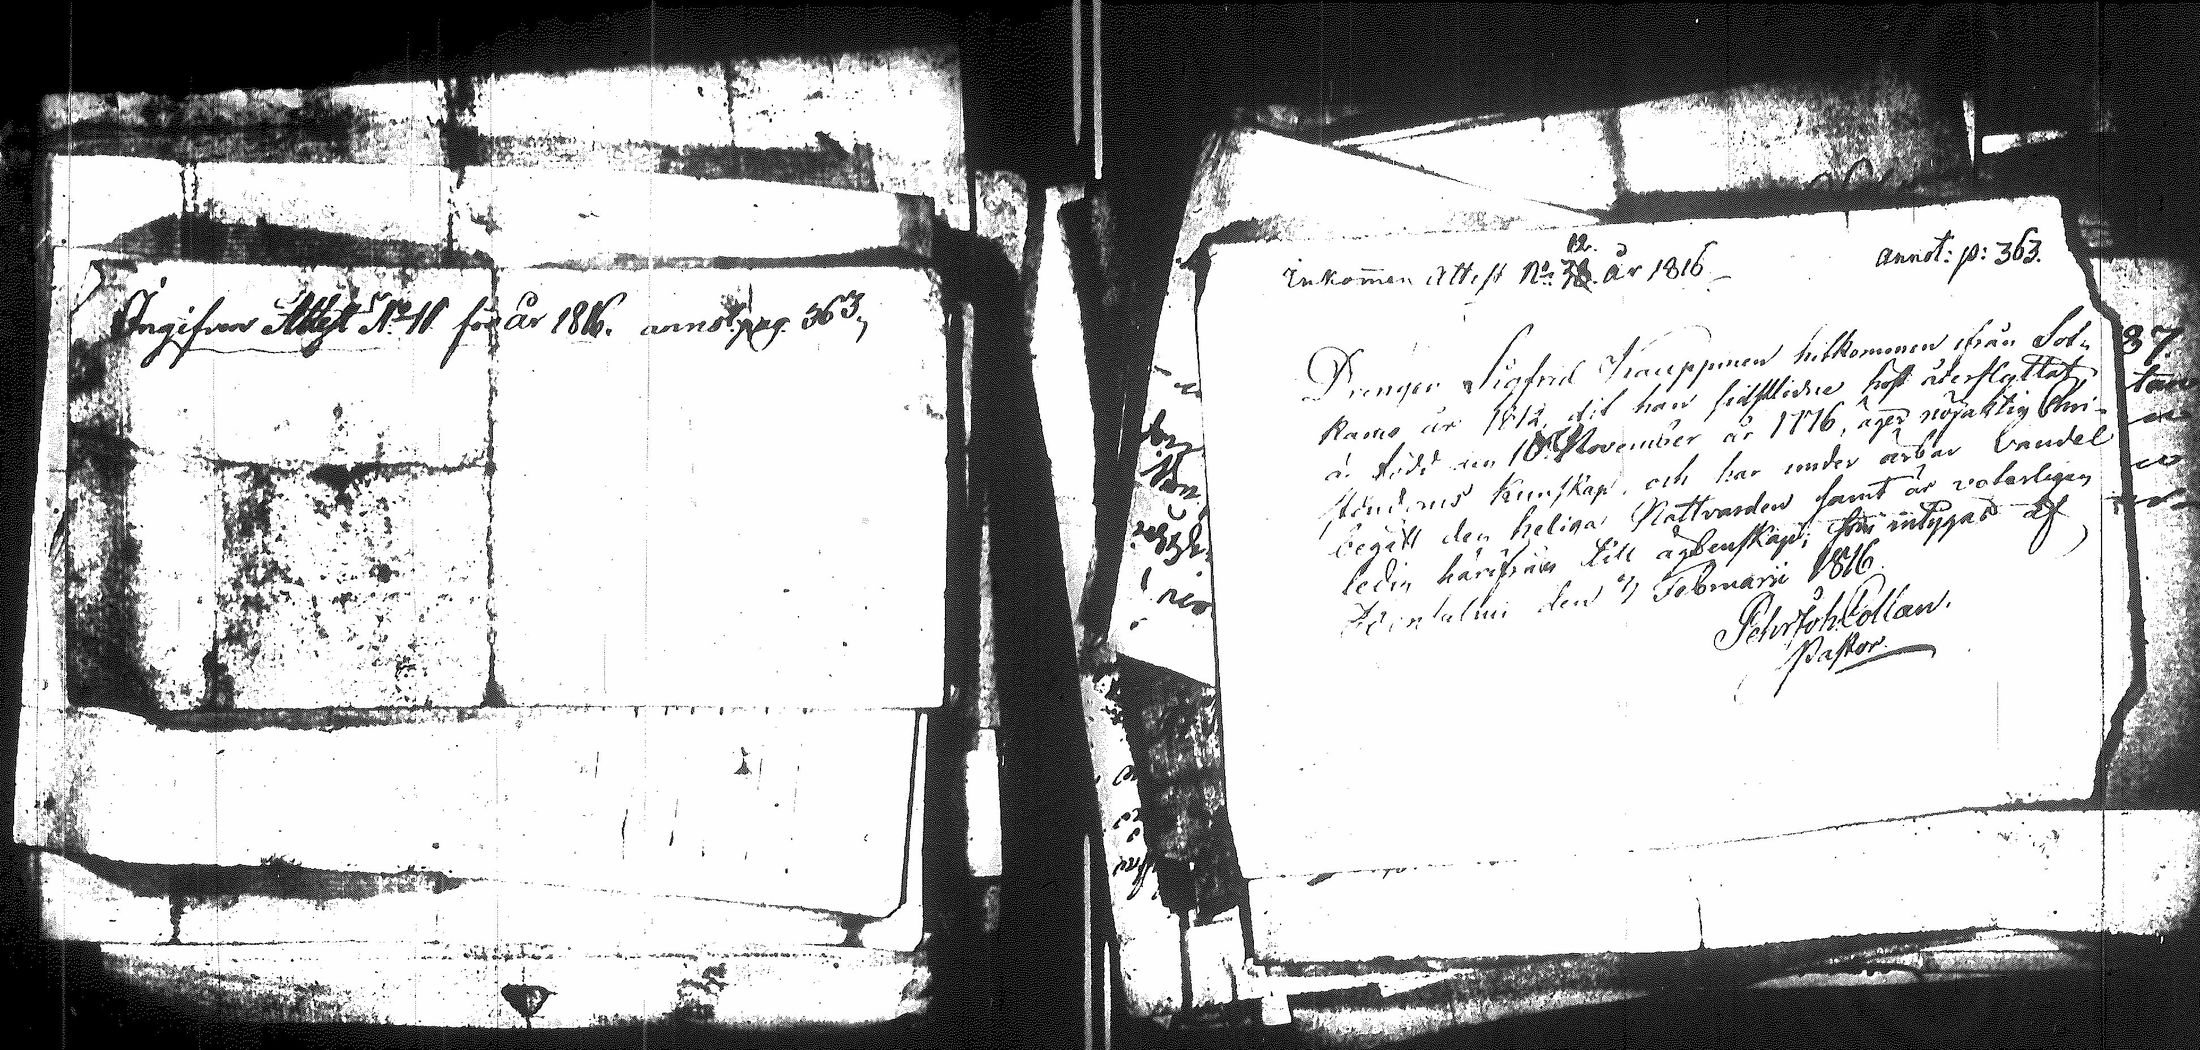 Ingifven Attest No 11 för år 1816. annot. pag. 363,
Inkommen Attest No: 12. år 1816
annot: p: 363.
Drengen Sigfrid Kauppinen hitkommen ifrån Sot-
kamo år 1812, dit han sidstledne höst återflyttat
är född den 10 November år 1776, äger nöjaktig Chri-
stendoms kunskap, och har under ärbar vandel
begått den heliga Nattvarden samt är voterligen
ledig härifrån till ägtenskap; som intygas af
den Februarii 1816.
Pehr Joh. Collan.
Pastor.
87